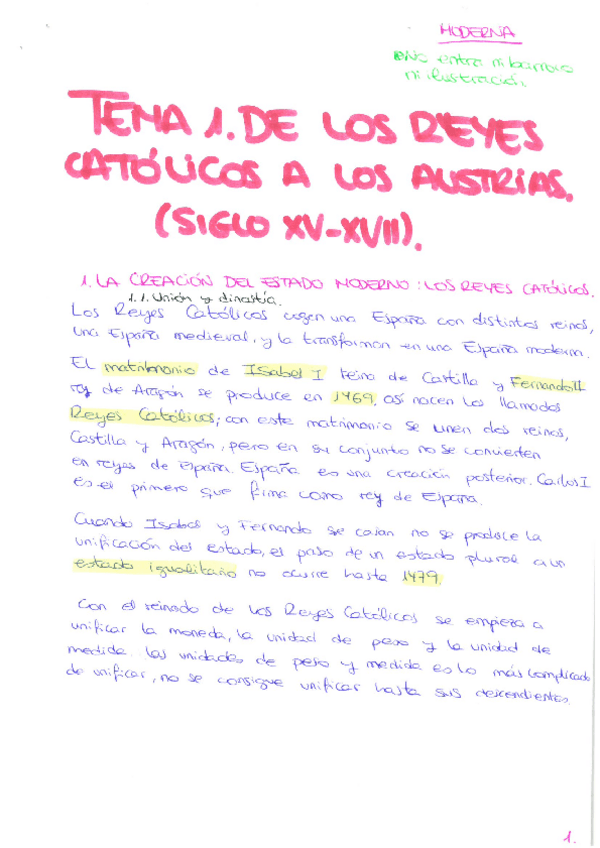 MODERNA
No entra ni barroco
ni ilustración.
TEMA 1. DE LOS REYES
CATÓLICOS A LOS AUSTRIAS.
(SIGLO XV-XVII).
1. LA CREACIÓN DEL ESTADO MODERNO: LOS REYES CATÓLICOS.
1.1. Unión y dinastía.
Los Reyes Católicos cogen una España con distintos reinos,
una España medieval, y la transforman en una España moderna.
El matrimonio de Isabel I reina de Castilla y Fernando II
rey de Aragón se produce en 1469, así nacen los llamados
Reyes Católicos; con este matrimonio se unen dos reinos,
Castilla y Aragón, pero en su conjunto no se convierten
en reyes de España. España es una creación posterior. Carlos I
es el primero que firma como rey de España.
Cuando Isabel y Fernando se casan no se produce la
unificación del estado, el paso de un estado plural a un
estado igualitario no ocurre hasta 1479.
Con el reinado de los Reyes Católicos se empieza a
unificar la moneda, la unidad de peso y la unidad de
medida. Las unidades de peso y medida es lo más complicado
de unificar, no se consigue unificar hasta sus descendientes.
1.